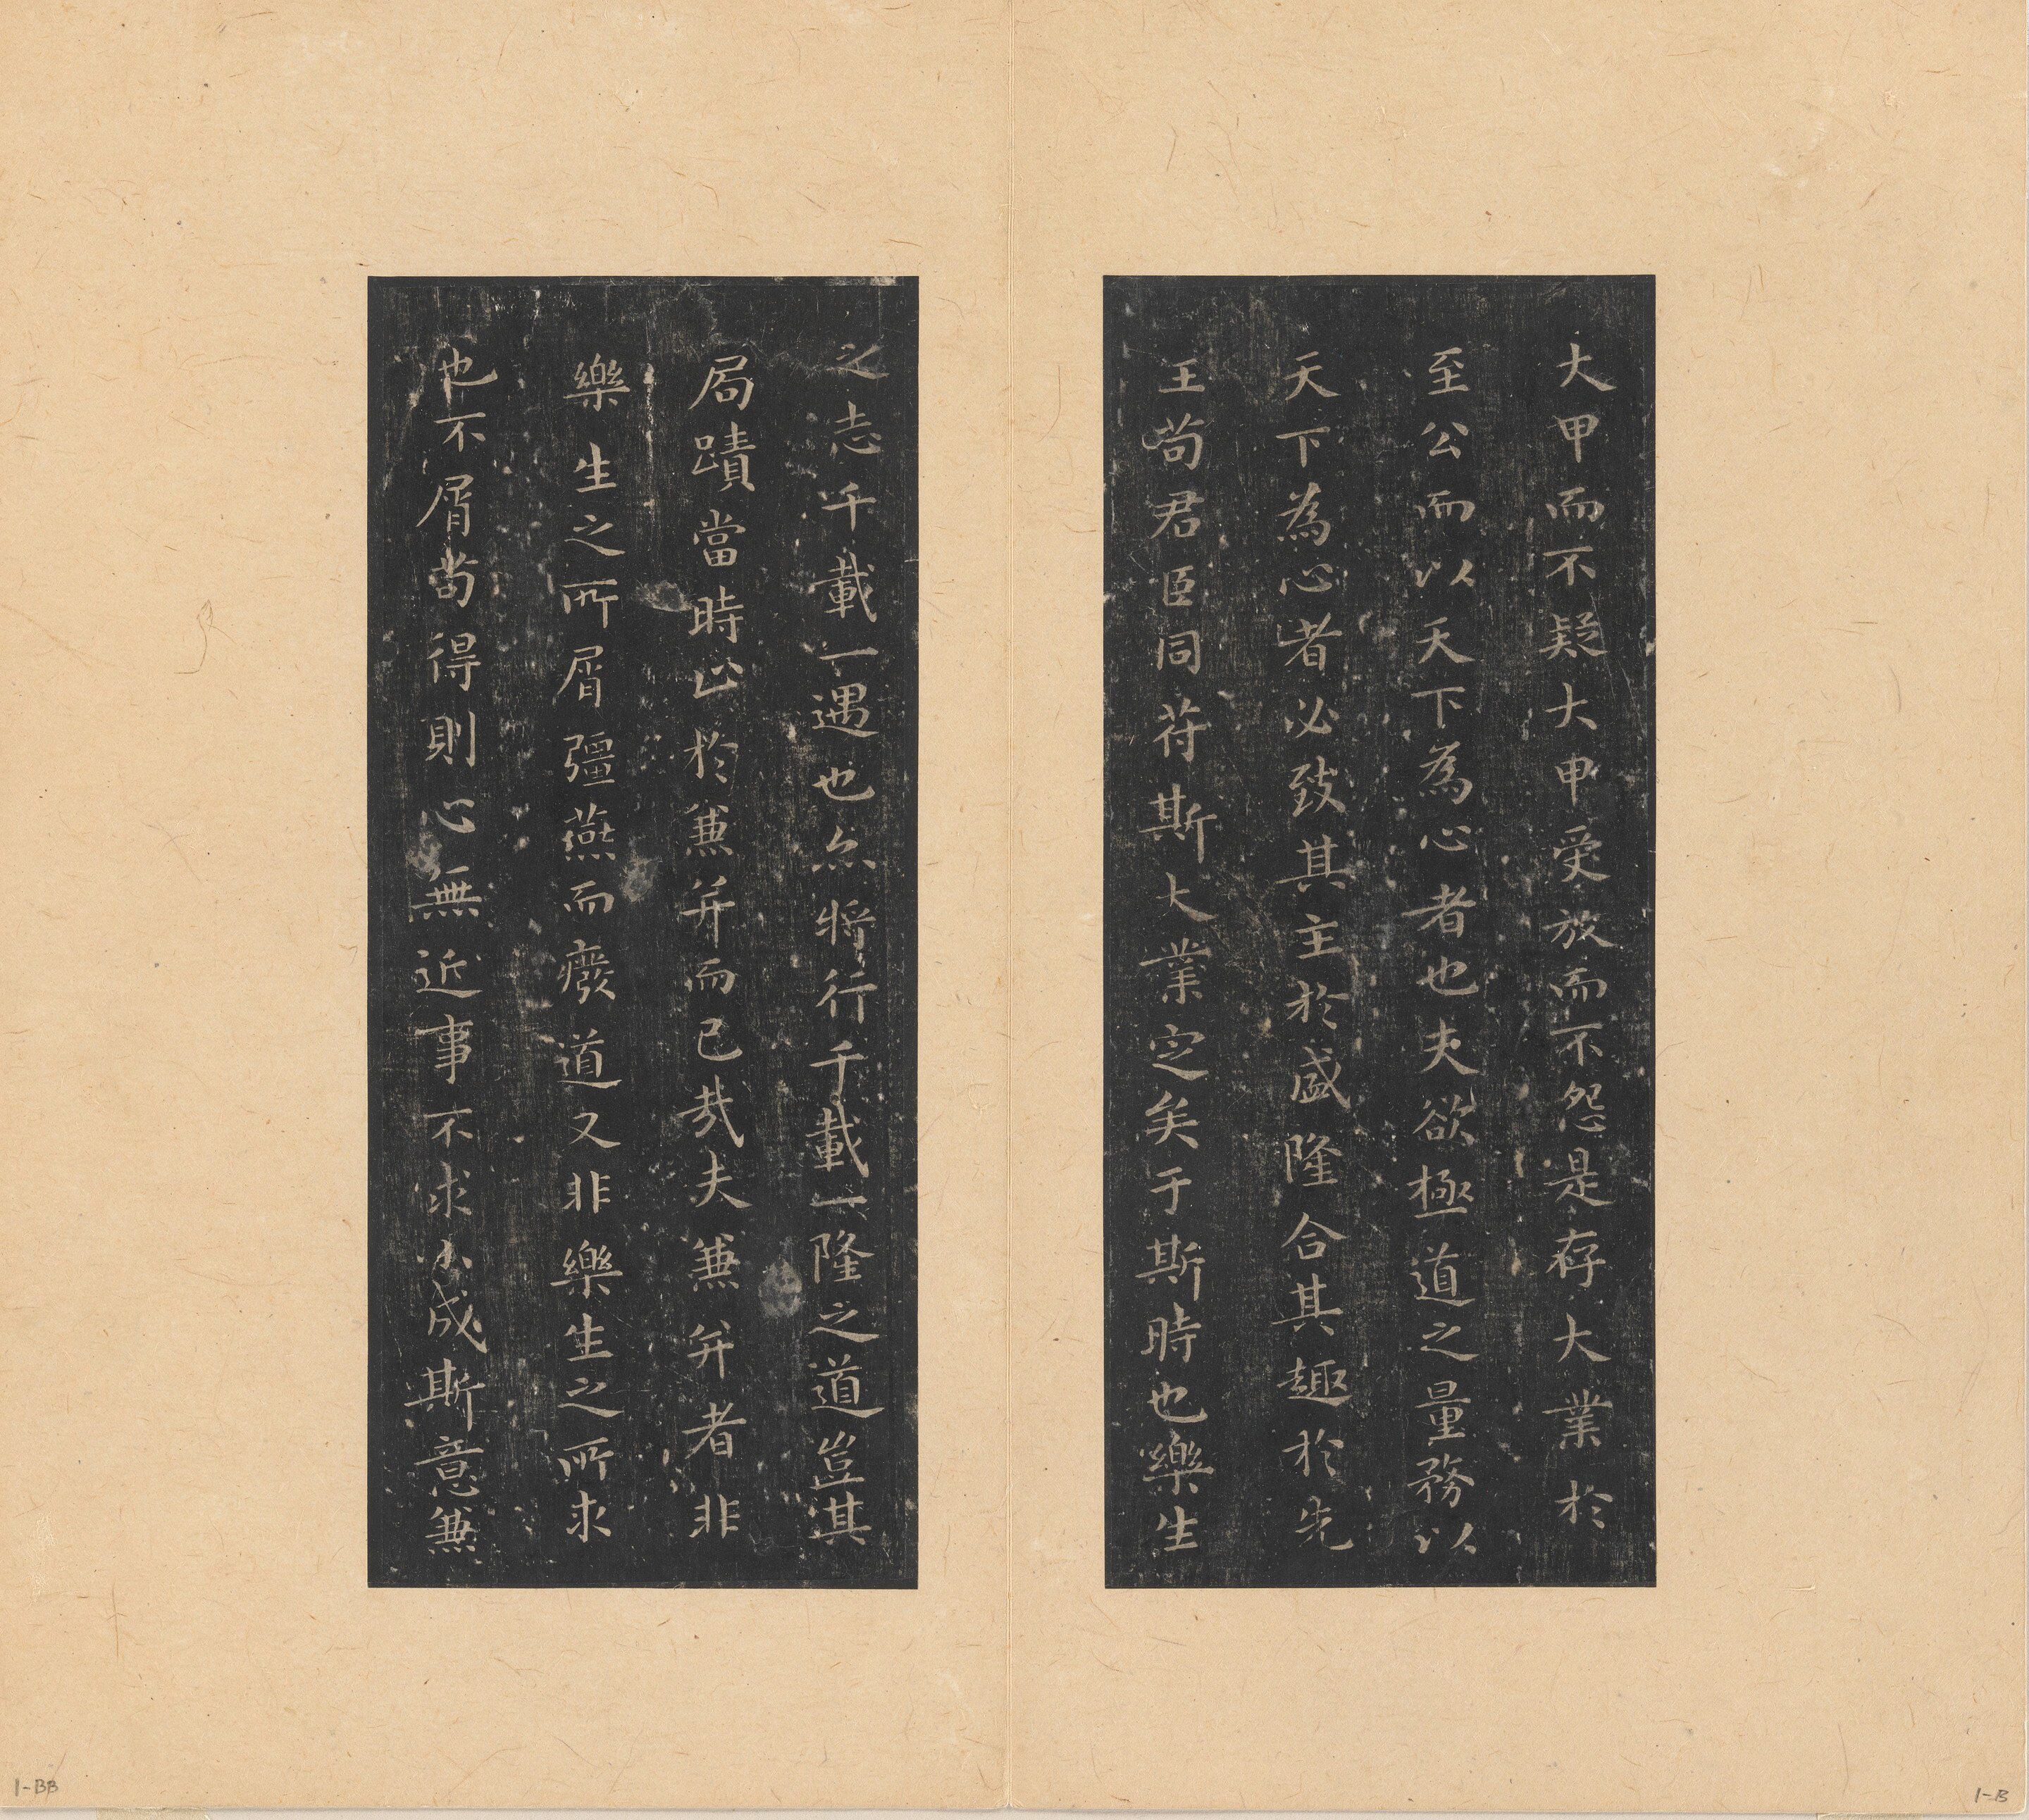 大甲而不疑大甲受放而不怨是存大業於
至公而以天下為心者也夫欲極道之量務以
天下為心者必致其主於盛隆合其趣於先
王苟君臣同符斯大業定矣于斯時也樂生
之志千載一遇也亦將行千載一隆之道豈其
局蹟當時止於兼并而已哉夫兼并者非
樂生之所屑彊燕而癈道又非樂生之所求
也不屑苟得則心無近事不求小成斯意兼
1-BB
1-B